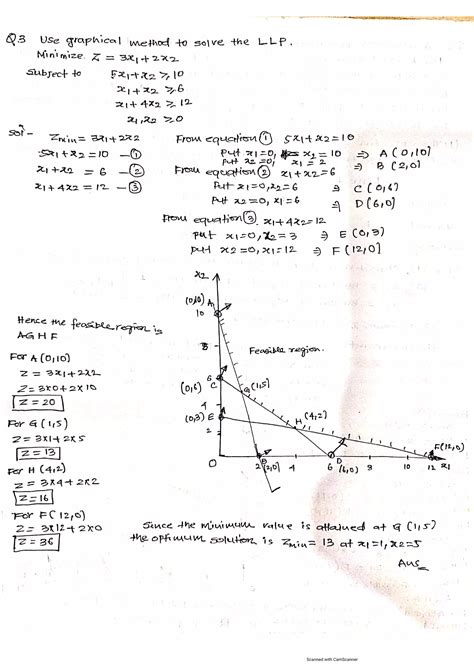 Q.3 Use graphical method to solve the LLP.
Minimize Z = 3x1 + 2x2
Subject to 5x1 + x2 ≥ 10
x1 + x2 ≥ 6
x1 + 4x2 ≥ 12
x1, x2 ≥ 0
Sol - Zmin = 3x1 + 2x2
5x1 + x2 = 10 - ①
x1 + x2 = 6 - ②
x1 + 4x2 = 12 - ③
From equation ① 5x1 + x2 = 10
Put x1 = 0, x2 = 10 ⇒ A (0,10)
Put x2 = 0, x1 = 2 ⇒ B (2,0)
From equation ② x1 + x2 = 6
Put x1 = 0, x2 = 6 ⇒ C (0,6)
Put x2 = 0, x1 = 6 ⇒ D (6,0)
From equation ③ x1 + 4x2 = 12
Put x1 = 0, x2 = 3 ⇒ E (0,3)
Put x2 = 0, x1 = 12 ⇒ F (12,0)
x2
(0,10) A
10
8
Feasible region.
6
(0,6) C
G (1,5)
4
(0,3) E
H (4,2)
2
F (12,0)
0 2 B (2,0) 4 6 D (6,0) 8 10 12 x1
Hence the feasible region is
AGHF
For A (0,10)
Z = 3x1 + 2x2
Z = 3×0 + 2×10
Z = 20
For G (1,5)
Z = 3×1 + 2×5
Z = 13
For H (4,2)
Z = 3×4 + 2×2
Z = 16
For F (12,0)
Z = 3×12 + 2×0
Z = 36
Since the minimum value is attained at G (1,5)
the optimum solution is Zmin = 13 at x1 = 1, x2 = 5
Ans
Scanned with CamScanner